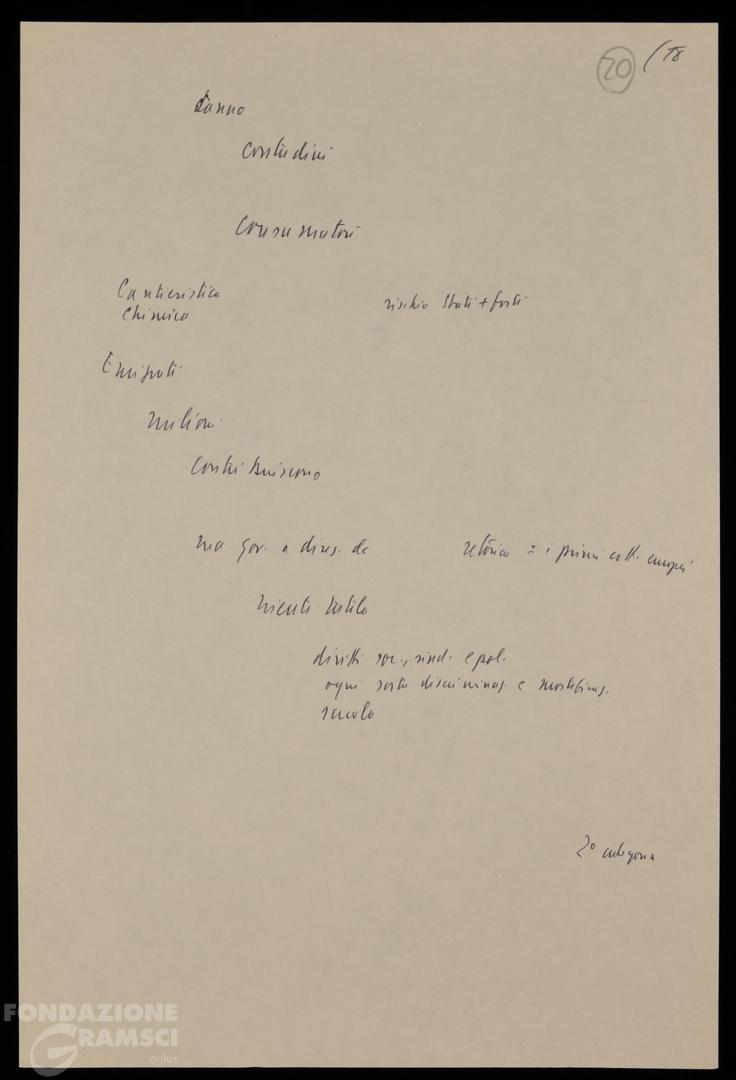 20 (18
danno
contadini
consumatori
Cantieristica
Chimica
rischio Stati + forti
Emigrati
milioni
contribuiscono
ma gov. e dirig. dc
retorica = i primi citt. europei
niente tutela
diritti soc., sind. e pol.
ogni sorta discriminaz. e mortificaz.
scuola
2º categoria
FONDAZIONE
GRAMSCI
onlus